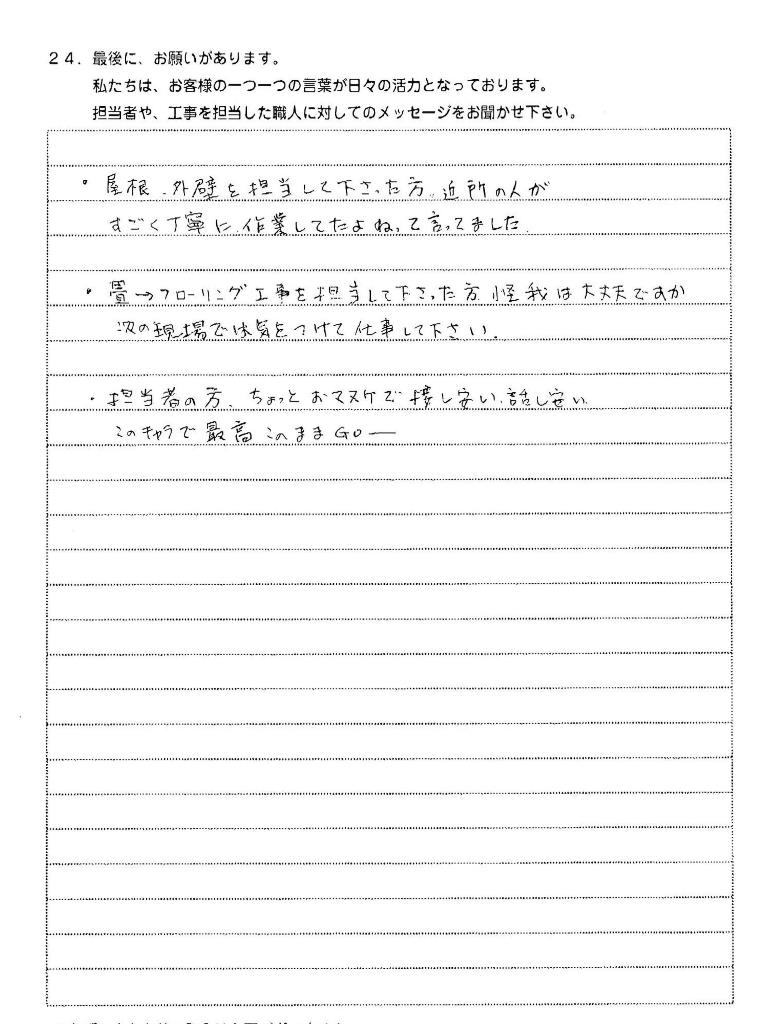 24. 最後に、お願いがあります。
私たちは、お客様の一つ一つの言葉が日々の活力となっております。
担当者や、工事を担当した職人に対してのメッセージをお聞かせ下さい。
・屋根、外壁を担当して下さった方、近所の人が
すごく丁寧に作業してたよねって言ってました
・畳→フローリング工事を担当して下さった方 怪我は大丈夫ですか
次の現場では気をつけて仕事して下さい。
・担当者の方、ちょっとおマヌケで接し安い、話し安い
このキャラで最高 このままGOー